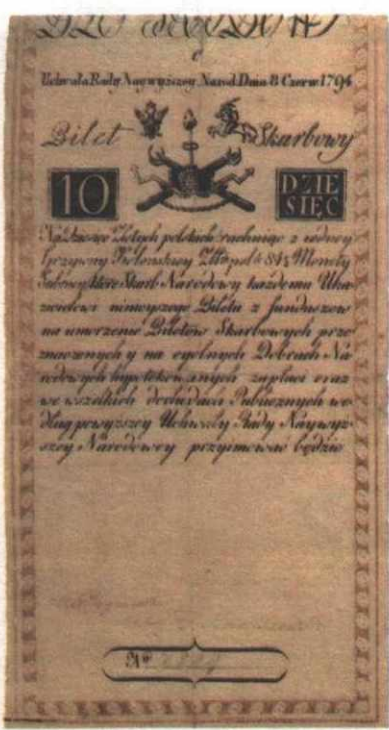 Uchwała Rady Naywyższey Narod: Dnia 8 Czerw: 1794
Bilet Skarbowy
10 DZIE
SIĘC
Na Dziesięc Złotych polskich rachuiąc z iedney
Grzywny Kolonskiey Złł: pol: 84½ Monetą
Srebrną które Skarb Narodowy każdemu Oka-
zicielowi ninieyszego Biletu z funduszow
na umorzenie Biletow Skarbowych prze-
znaczonych y na ogolnych Dobrach Na-
rodowych hypotekowanych zapłaci oraz
we wszelkich dochodach Publicznych we-
dług powyższey Uchwały Rady Naywyż-
szey Narodowey przyimować będzie
Nº